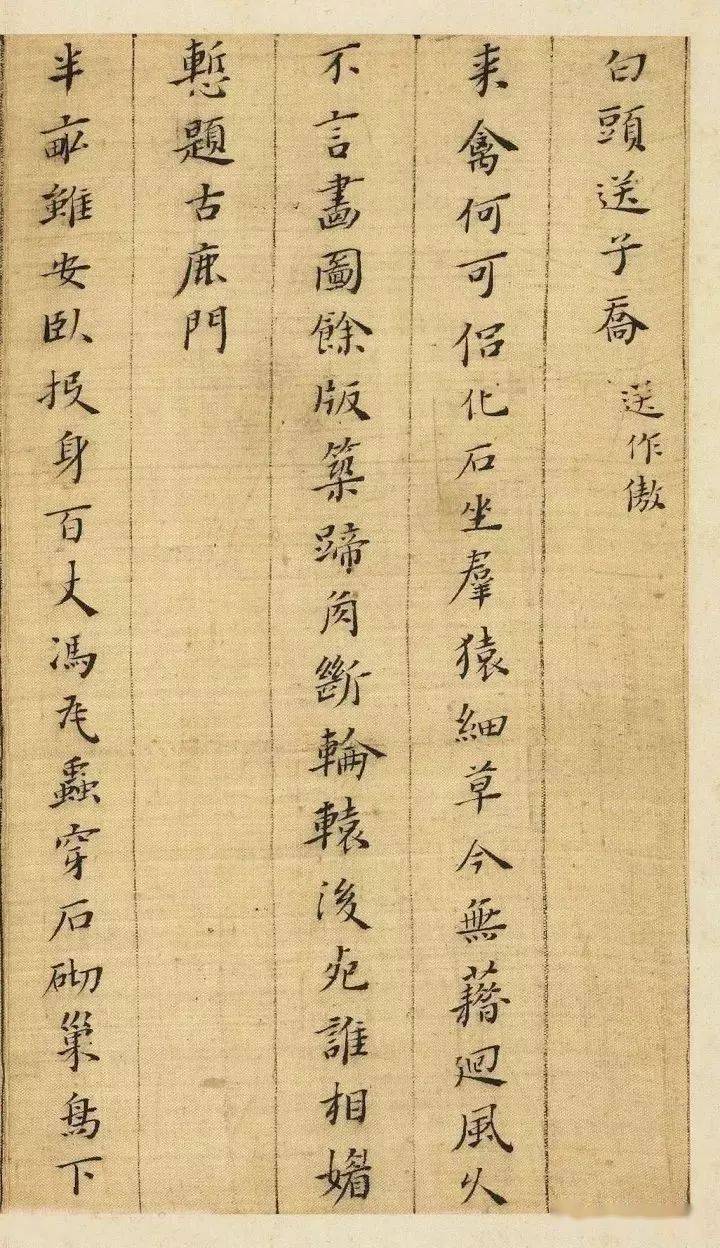 白頭送子喬 送作傲
来禽何可侣化石坐羣猿細草今無藉廻風火
不言畫圖餘版築蹄角斷輪轅後死誰相媚
慙題古鹿門
半畝雖安臥投身百丈馮蟲穿石砌巢鳥下